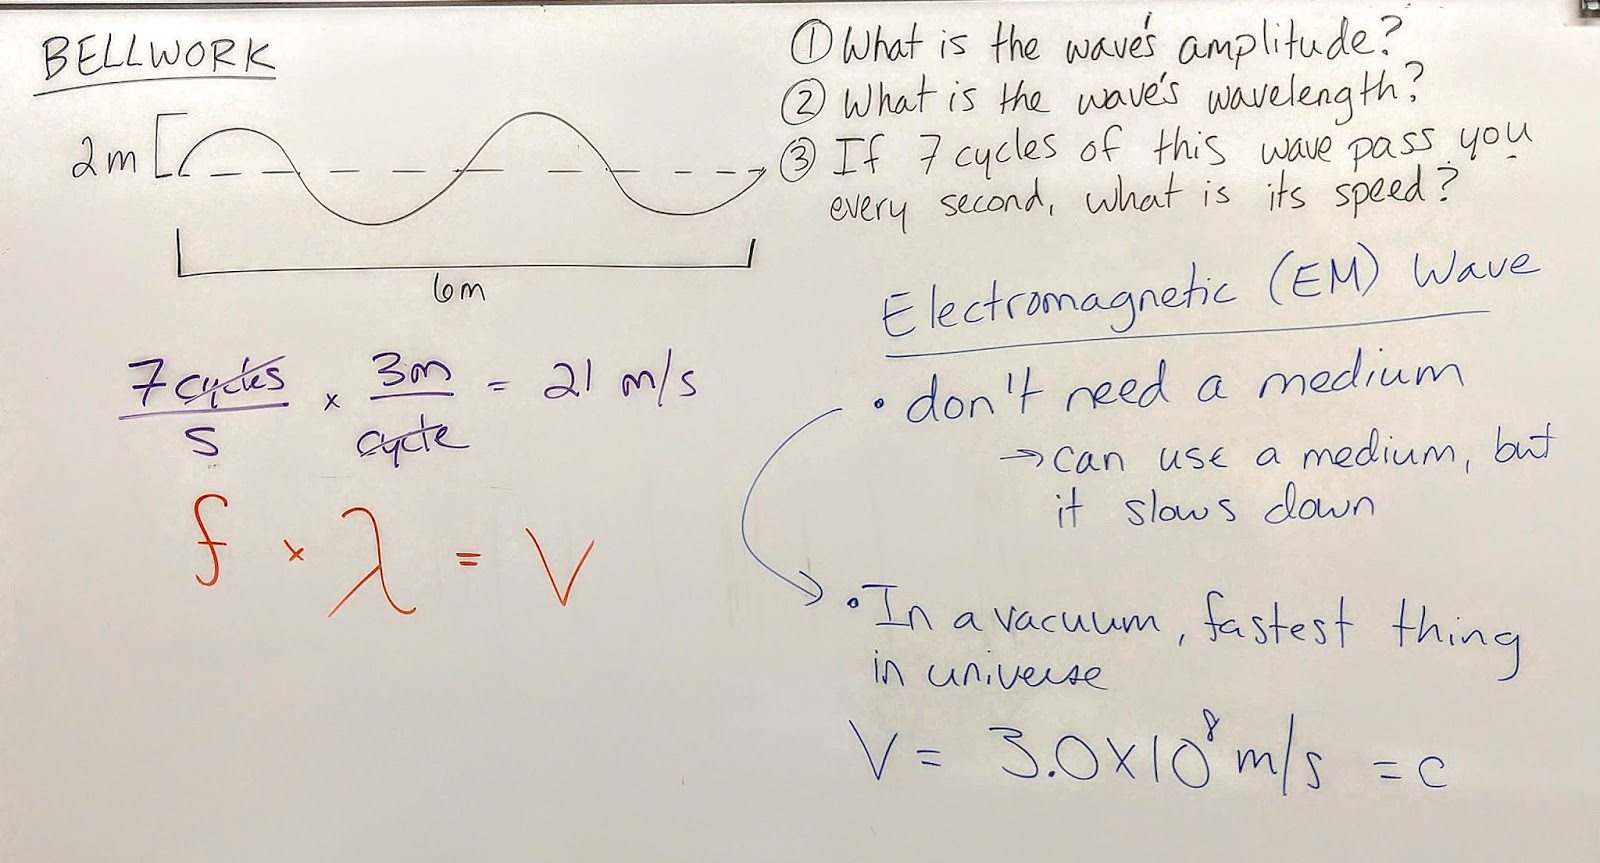 BELLWORK
2m
6m
① What is the wave's amplitude?
② What is the wave's wavelength?
③ If 7 cycles of this wave pass you
every second, what is its speed?
7 cycles/s × 3m/cycle = 21 m/s
f × λ = V
Electromagnetic (EM) Wave
• don't need a medium
→ can use a medium, but
it slows down
• In a vacuum, fastest thing
in universe
V = 3.0×10⁸ m/s = c